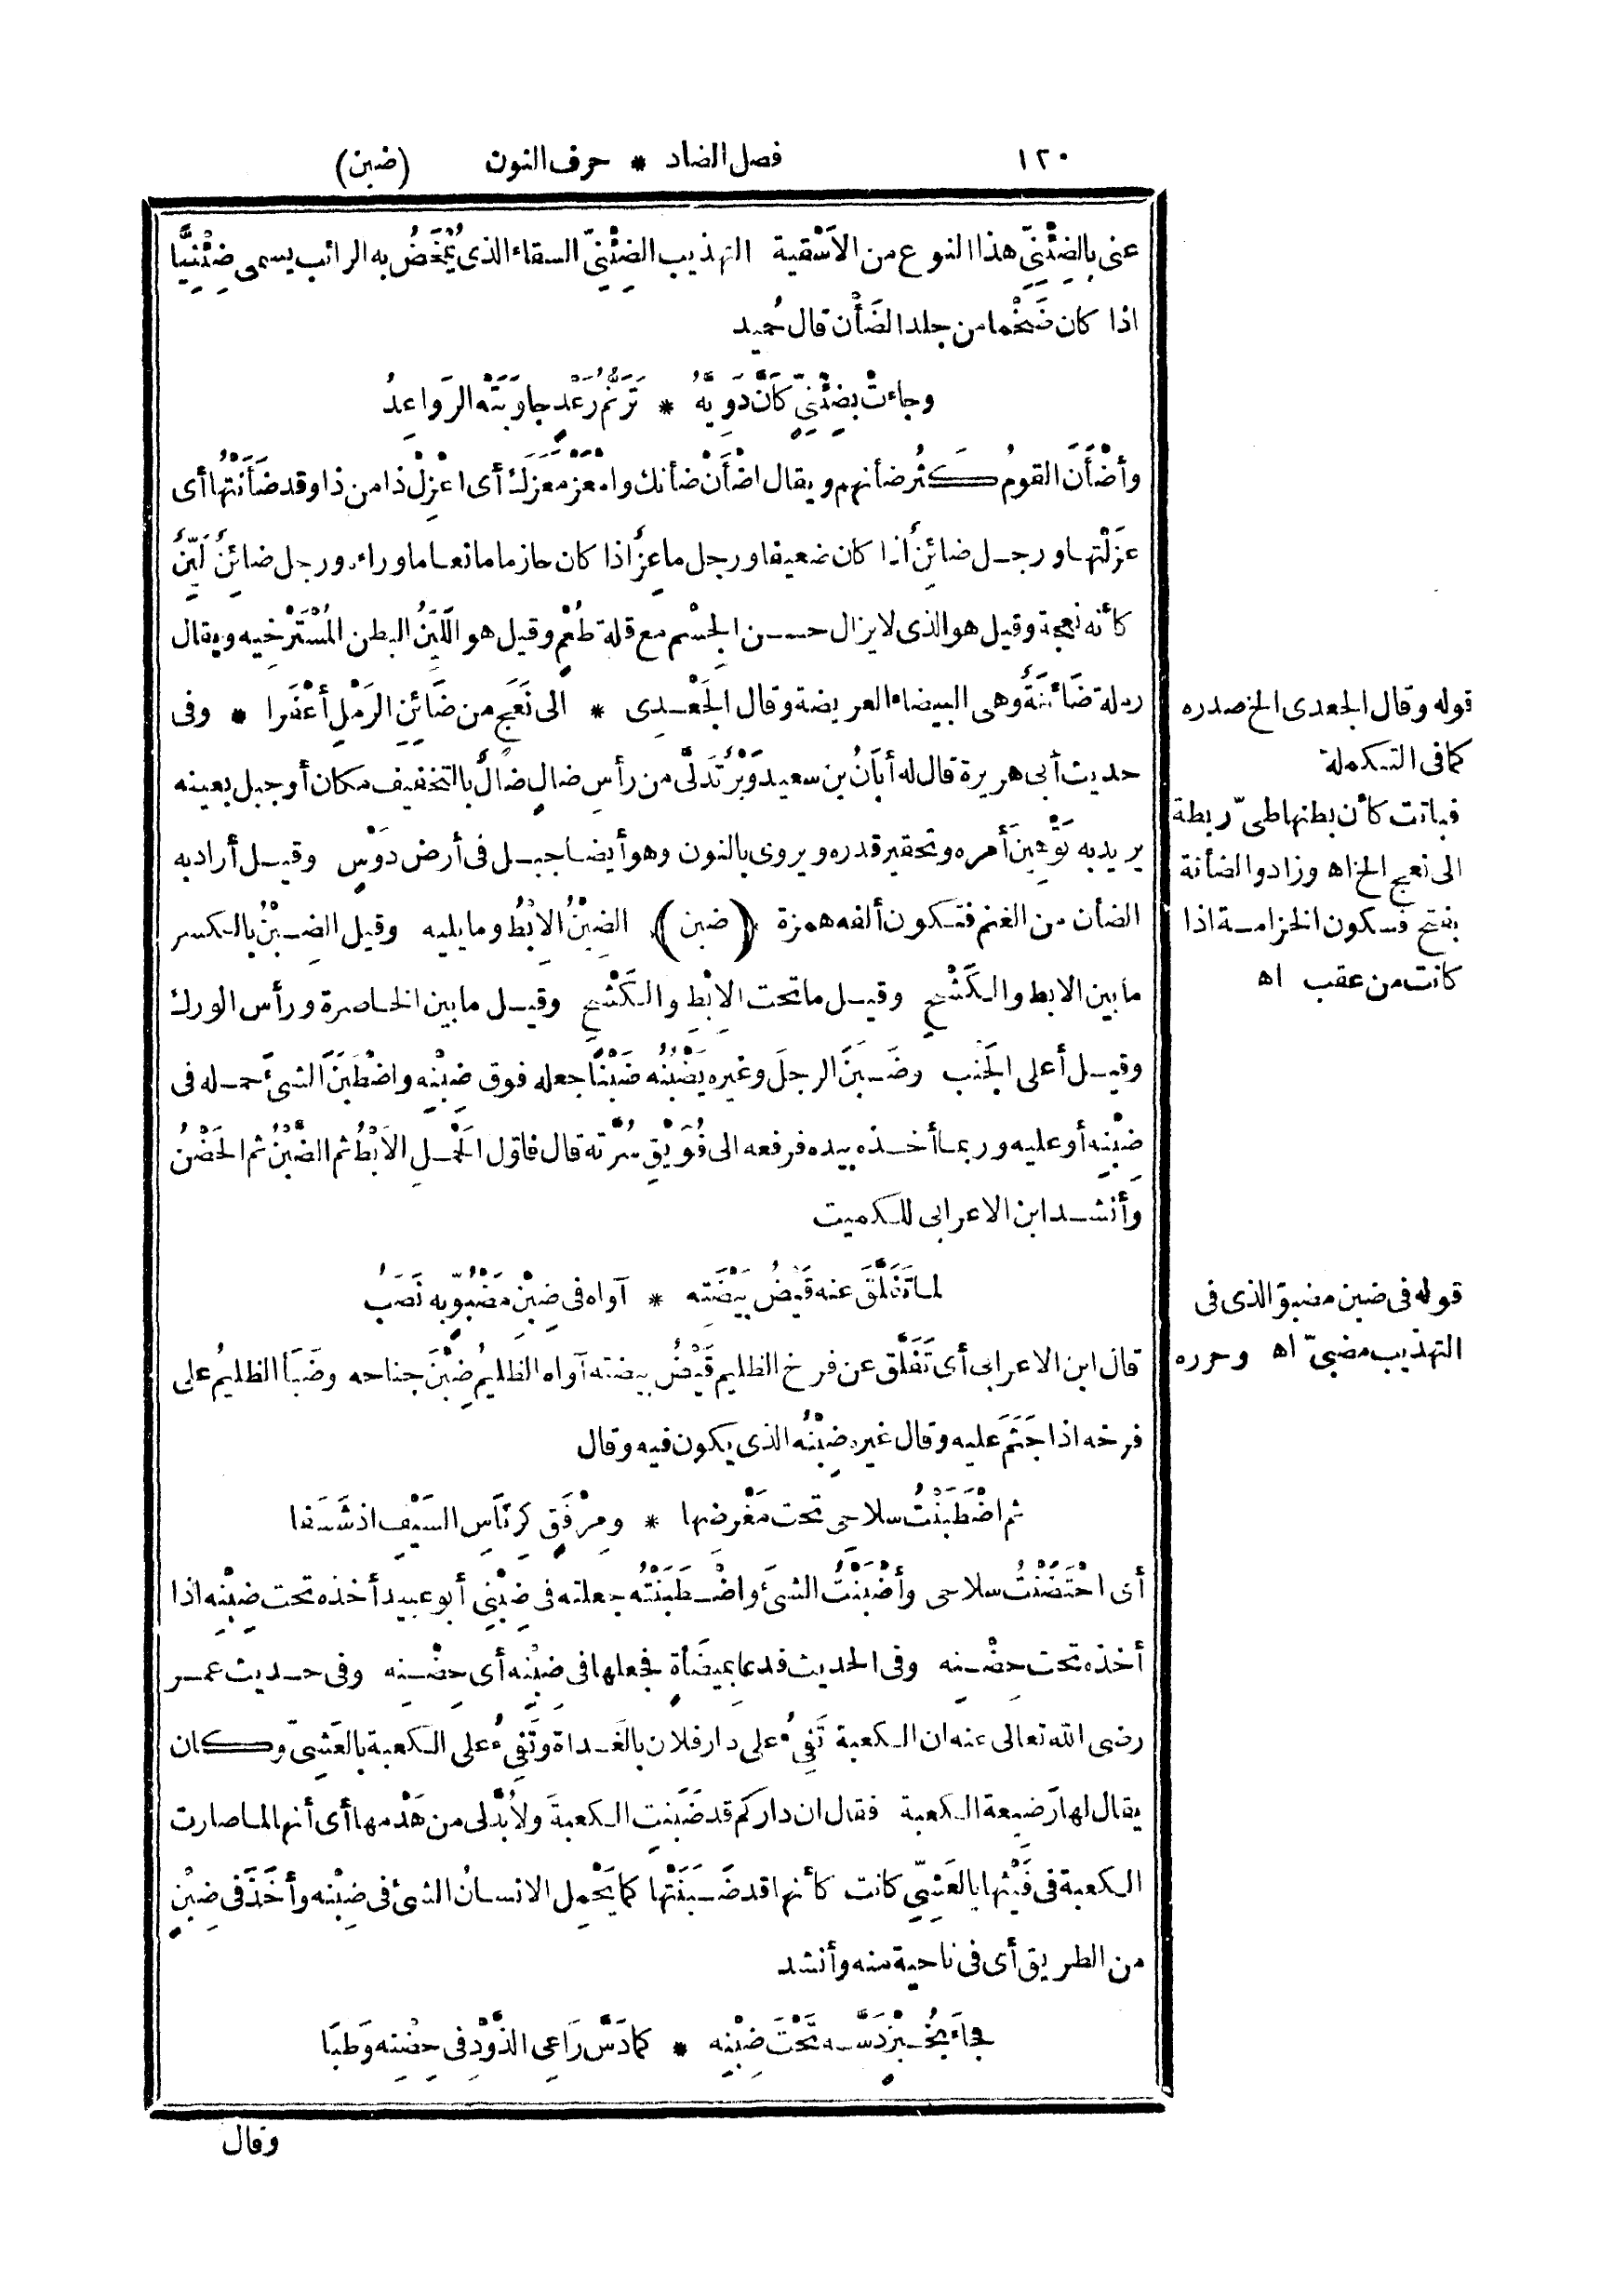 ١٢٠ فصل الضاد * حرف النون (ضبن)
عنى بالضِئْنِىِّ هذا النوع من الاَسْقية التهذيب الضِئْنِىّ السقاء الذى يُمْخَضُ به الرائب يسمى ضِئْنِيًّا
اذا كان ضَخْما من جلد الضَأْن قال حُميد
وجاءتْ بضِئْنِىٍّ كأنَّ دَوِيَّهُ * تَرَنُّمُ رَعْدٍ جاوَبَتْه الرَواعِدُ
وأَضْأَنَ القومُ كثُر ضأنهم ويقال اضْأَنْ ضأنك وامْعَزْ مَعزَك أى اعْزِلْ ذا من ذا وقد ضَأَنْتُها أى
عزَلْتها ورجل ضائِنٌ اذا كان ضعيفا ورجل ماعِزٌ اذا كان حازما مانعا ما وراءه ورجل ضائِنٌ لَيِّنٌ
كأنه نعجة وقيل هو الذى لا يزال حسن الجِسْم مع قلة طُعْمٍ وقيل هو اللَيِّنُ البطن المُسْتَرْخِيه ويقال
رملة ضَائنَةٌ وهى البيضاء العريضة وقال الجَعْدِى * الى نَعَجٍ من ضَائِنِ الرَمْلِ أَعْفَرا * وفى
حديث أبى هريرة قال له أَبَانُ بن سعيد وَبْرٌ تَدَلَّى من رأسِ ضالٍ ضالٌ بالتخفيف مكان أو جبل بعينه
يريد به تَوْهِينَ أمره وتحقير قدره ويروى بالنون وهو أيضا جبل فى أرض دَوْسٍ وقيل أراد به
الضأن من الغنم فتكون ألفه همزة (ضبن) الضِبْنُ الاِبْطُ وما يليه وقيل الضِبْنُ بالكسر
ما بين الابط والكَشْحِ وقيل ما تحت الاِبْطِ والكَشْحِ وقيل ما بين الخاصرة ورأس الورك
وقيل أعلى الجَنْب وضَبَنَ الرجلَ وغيره يَضْبُنُه ضَبْنًا جعله فوق ضِبْنِه واضْطَبَنَ الشئَ حمله فى
ضِبْنِه أو عليه وربما أخذه بيده فرفعه الى فُوَيْقِ سُرَّته قال فاوّل الحَمْلِ الاَبْطُ ثم الضَّبْنُ ثم الحَضْنُ
وأنشد ابن الاعرابى للكميت
لما تَفَلَّقَ عنه قَيْضُ بَيْضَتِه * آواه فى ضِبْنِ مَضْبُوّ به نَصَبُ
قال ابن الاعرابى أى تَفَلَّق عن فرخ الظليم قَيْضُ بيضته آواه الظليمُ ضِبْنَ جناحه وضَبَأ الظليمُ على
فرخه اذا جَثَمَ عليه وقال غيره ضِبْنُه الذى يكون فيه وقال
ثم اضْطَبَنْتُ سلاحى تحت مَغْرِضِها * ومِرْفَقٍ كرِئَاسِ السَيْفِ اذ شَسَفا
أى احْتَضَنْتُ سلاحى وأَضْبَنْتُ الشئَ واضْطَبَنْتُه جعلته فى ضِبْنِى أبو عبيد أخذه تحت ضِبْنِه اذا
أخذه تحت حِضْنِه وفى الحديث فدعا بمِيضَأةٍ فجعلها فى ضِبْنِه أى حِضْنِه وفى حديث عمر
رضى الله تعالى عنه ان الكعبة تَفِىءُ على دار فلان بالغَداة وتَفِىءُ على الكعبة بالعَشِىّ وكان
يقال لها رَضيعة الكعبة فقال ان داركم قد ضَبَنَتِ الكعبةَ ولا بُدَّ لى من هَدْمها أى أنها لما صارت
الكعبة فى فَيْئِها بالعَشِىِّ كانت كأنها قد ضَبَنَتْها كما يَحْمِل الانسانُ الشئَ فى ضِبْنِه وأَخَذَ فى ضِبْنٍ
من الطريق أى فى ناحية منه وأنشد
فجاءَ بخُبْزٍ دَسَّه تَحْتَ ضِبْنِه * كما دَسَّ رَاعِى الذَّوْدِ فى حِضْنِه وَطْبَا
وقال
قوله وقال الجعدى الخ صدره
كما فى التكملة
فباتت كأن بطنها طىّ ريطة
الى نعج الخ اه وزاد والضأنة
بفتح فسكون الخزامة اذا
كانت من عقب اه
قوله فى ضبن مضبو الذى فى
التهذيب مضبىّ اه وحرره